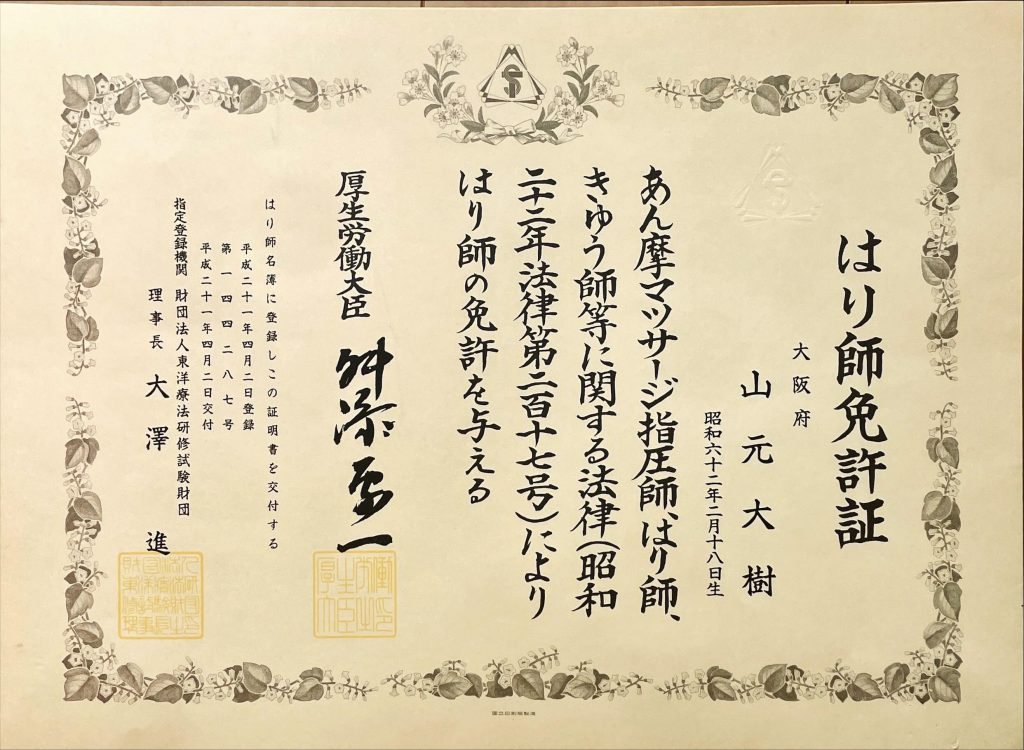 はり師免許証
大阪府
山元大樹
昭和六十二年二月十八日生
あん摩マツサージ指圧師、はり師、
きゅう師等に関する法律(昭和
二十二年法律第二百十七号)により
はり師の免許を与える
厚生労働大臣 舛添要一
はり師名簿に登録しこの証明書を交付する
平成二十一年四月二日登録
第一四四二八七号
平成二十一年四月二日交付
指定登録機関 財団法人東洋療法研修試験財団
理事長 大澤 進
国立印刷局製造